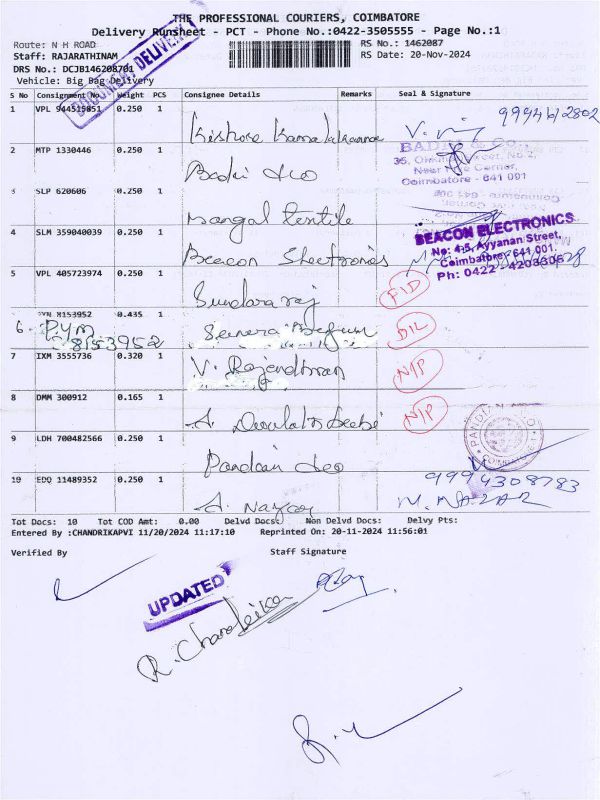 THE PROFESSIONAL COURIERS, COIMBATORE
Delivery Runsheet - PCT - Phone No.:0422-3505555 - Page No.:1
Route: N H ROAD RS No.: 1462087
Staff: RAJARATHINAM RS Date: 20-Nov-2024
DRS No.: DCJB146208701
Vehicle: Big Bag Delivery
DOCUMENT DELIVERY
S No Consignment No. Weight PCS Consignee Details Remarks Seal & Signature
1 VPL 944519851 0.250 1 Kishore 9994612802
BADRI & Co.,
2 MTP 1330446 0.250 1 Badri &co
Coimbatore - 641 001
3 SLP 620606 0.250 1 Mangal textile
4 SLM 359040039 0.250 1 Beacon Electronics
BEACON ELECTRONICS
No: 4,5, Ayyanan Street,
Coimbatore - 641 001.
Ph: 0422 - 4203306
5 VPL 405723974 0.250 1 Sundara raj F/D
PYN 8153952 0.435 1 Begum D/L
6. PYM 8153952
7 IXM 3555736 0.320 1 V. Rajendhran N/P
8 DMM 300912 0.165 1 A. N/P
9 LDH 700482566 0.250 1 Pandian &co
10 EDQ 11489352 0.250 1 A. 9994308783
Tot Docs: 10 Tot COD Amt: 0.00 Delvd Docs: Non Delvd Docs: Delvy Pts:
Entered By :CHANDRIKAPVI 11/20/2024 11:17:10 Reprinted On: 20-11-2024 11:56:01
Verified By Staff Signature
UPDATED
R. Chandrika